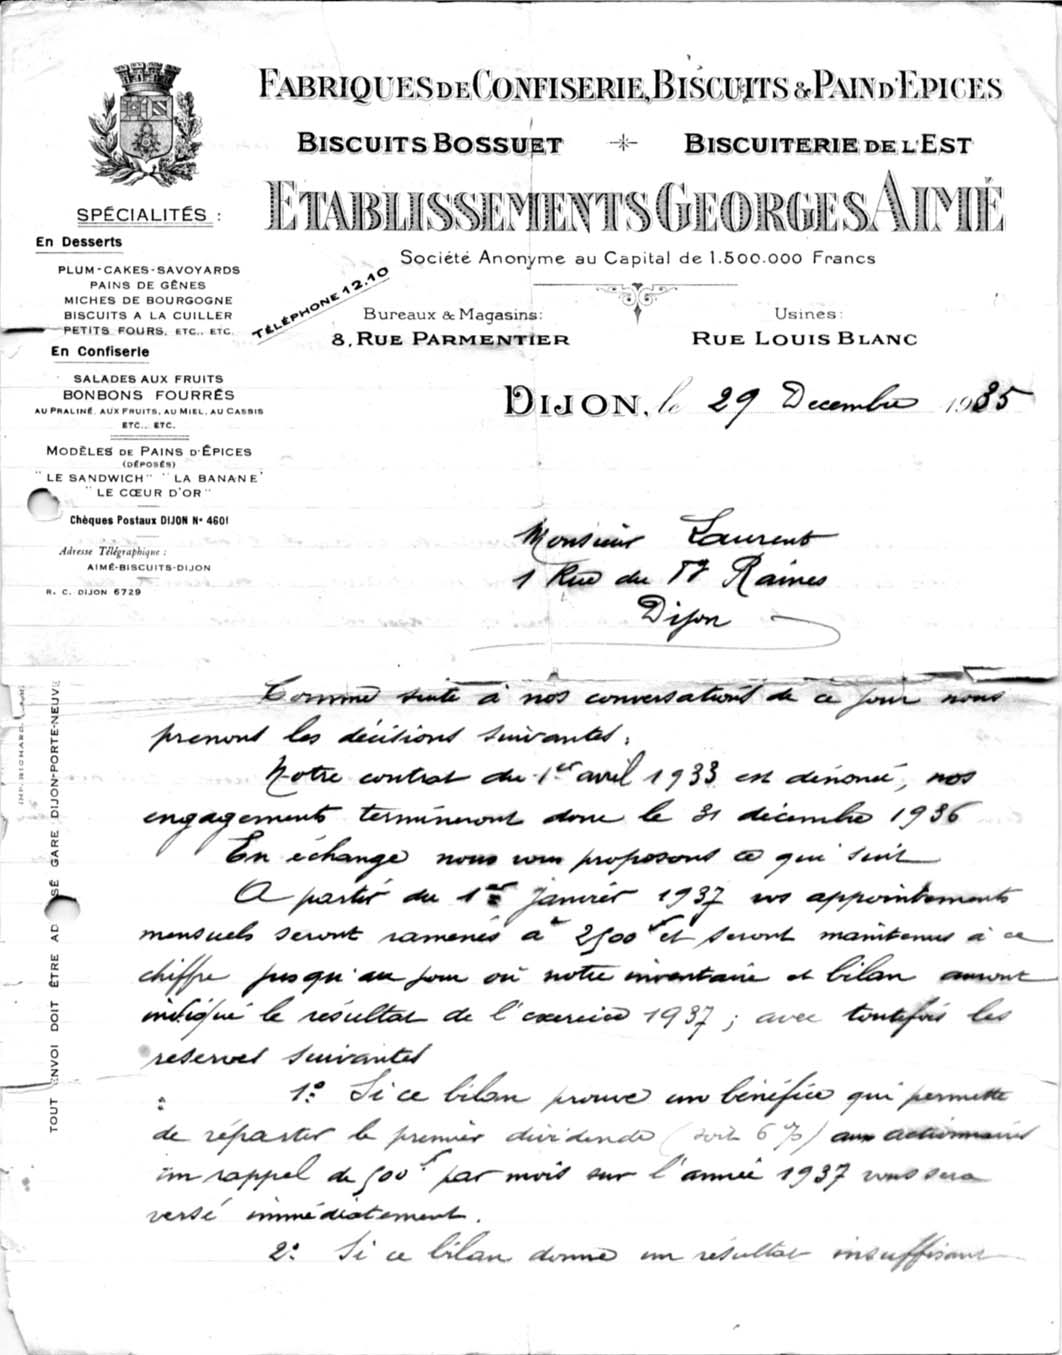 FABRIQUES DE CONFISERIE, BISCUITS & PAIN D'EPICES
BISCUITS BOSSUET
BISCUITERIE DE L'EST
ETABLISSEMENTS GEORGES AIMÉ
Société Anonyme au Capital de 1.500.000 Francs
TÉLÉPHONE 12.10
Bureaux & Magasins:
8, RUE PARMENTIER
Usines:
RUE LOUIS BLANC
SPÉCIALITÉS :
En Desserts
PLUM-CAKES-SAVOYARDS
PAINS DE GÊNES
MICHES DE BOURGOGNE
BISCUITS A LA CUILLER
PETITS FOURS, ETC., ETC.
En Confiserie
SALADES AUX FRUITS
BONBONS FOURRÉS
AU PRALINÉ, AUX FRUITS, AU MIEL, AU CASSIS
ETC., ETC.
MODÈLES DE PAINS D'ÉPICES
(DÉPOSÉS)
"LE SANDWICH" "LA BANANE"
"LE CŒUR D'OR"
Chèques Postaux DIJON N° 4601
Adresse Télégraphique :
AIMÉ-BISCUITS-DIJON
R. C. DIJON 6729
DIJON, le 29 Decembre 1935
Monsieur Laurent
1 Rue du Fg Raines
Dijon
Comme suite à nos conversations de ce jour nous
prenons les décisions suivantes :
Notre contrat du 1er avril 1933 est dénoncé, nos
engagements termineront donc le 31 décembre 1936
En échange nous vous proposons ce qui suit
A partir du 1er Janvier 1937 vos appointements
mensuels seront ramenés à 2500f et seront maintenus à ce
chiffre jusqu'au jour où notre inventaire et bilan auront
indiqué le résultat de l'exercice 1937 ; avec toutefois les
reserves suivantes
1° Si ce bilan prouve un bénéfice qui permette
de répartir le premier dividende (soit 6 %) aux actionnaires
un rappel de 500f par mois sur l'année 1937 vous sera
versé immédiatement.
2° Si ce bilan donne un résultat insuffisant
TOUT ENVOI DOIT ÊTRE ADRESSÉ GARE DIJON-PORTE-NEUVE
IMP. RICHARD